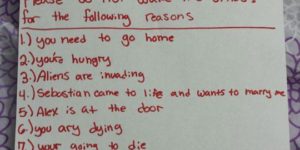 for the following reasons
1.) you need to go home
2.) you're hungry
3.) Aliens are invading
4.) Sebastian came to life and wants to marry me
5.) Alex is at the door
6.) you ary dying
7.) your going to die